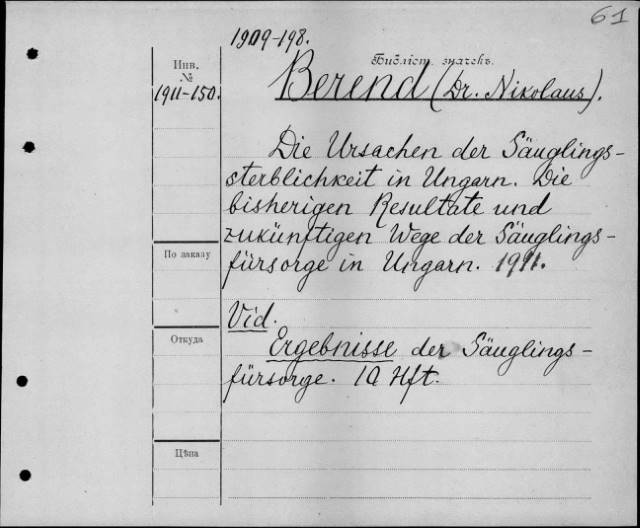 61
1909-198.
Библіот. значекъ.
Инв.
№
1911-150.
Berend (Dr. Nikolaus).
Die Ursachen der Säuglings-
sterblichkeit in Ungarn. Die
bisherigen Resultate und
zukünftigen Wege der Säuglings-
fürsorge in Ungarn. 1911.
По заказу
Vid.
Ergebnisse der Säuglings-
fürsorge. 10 Hft.
Откуда
Цѣна